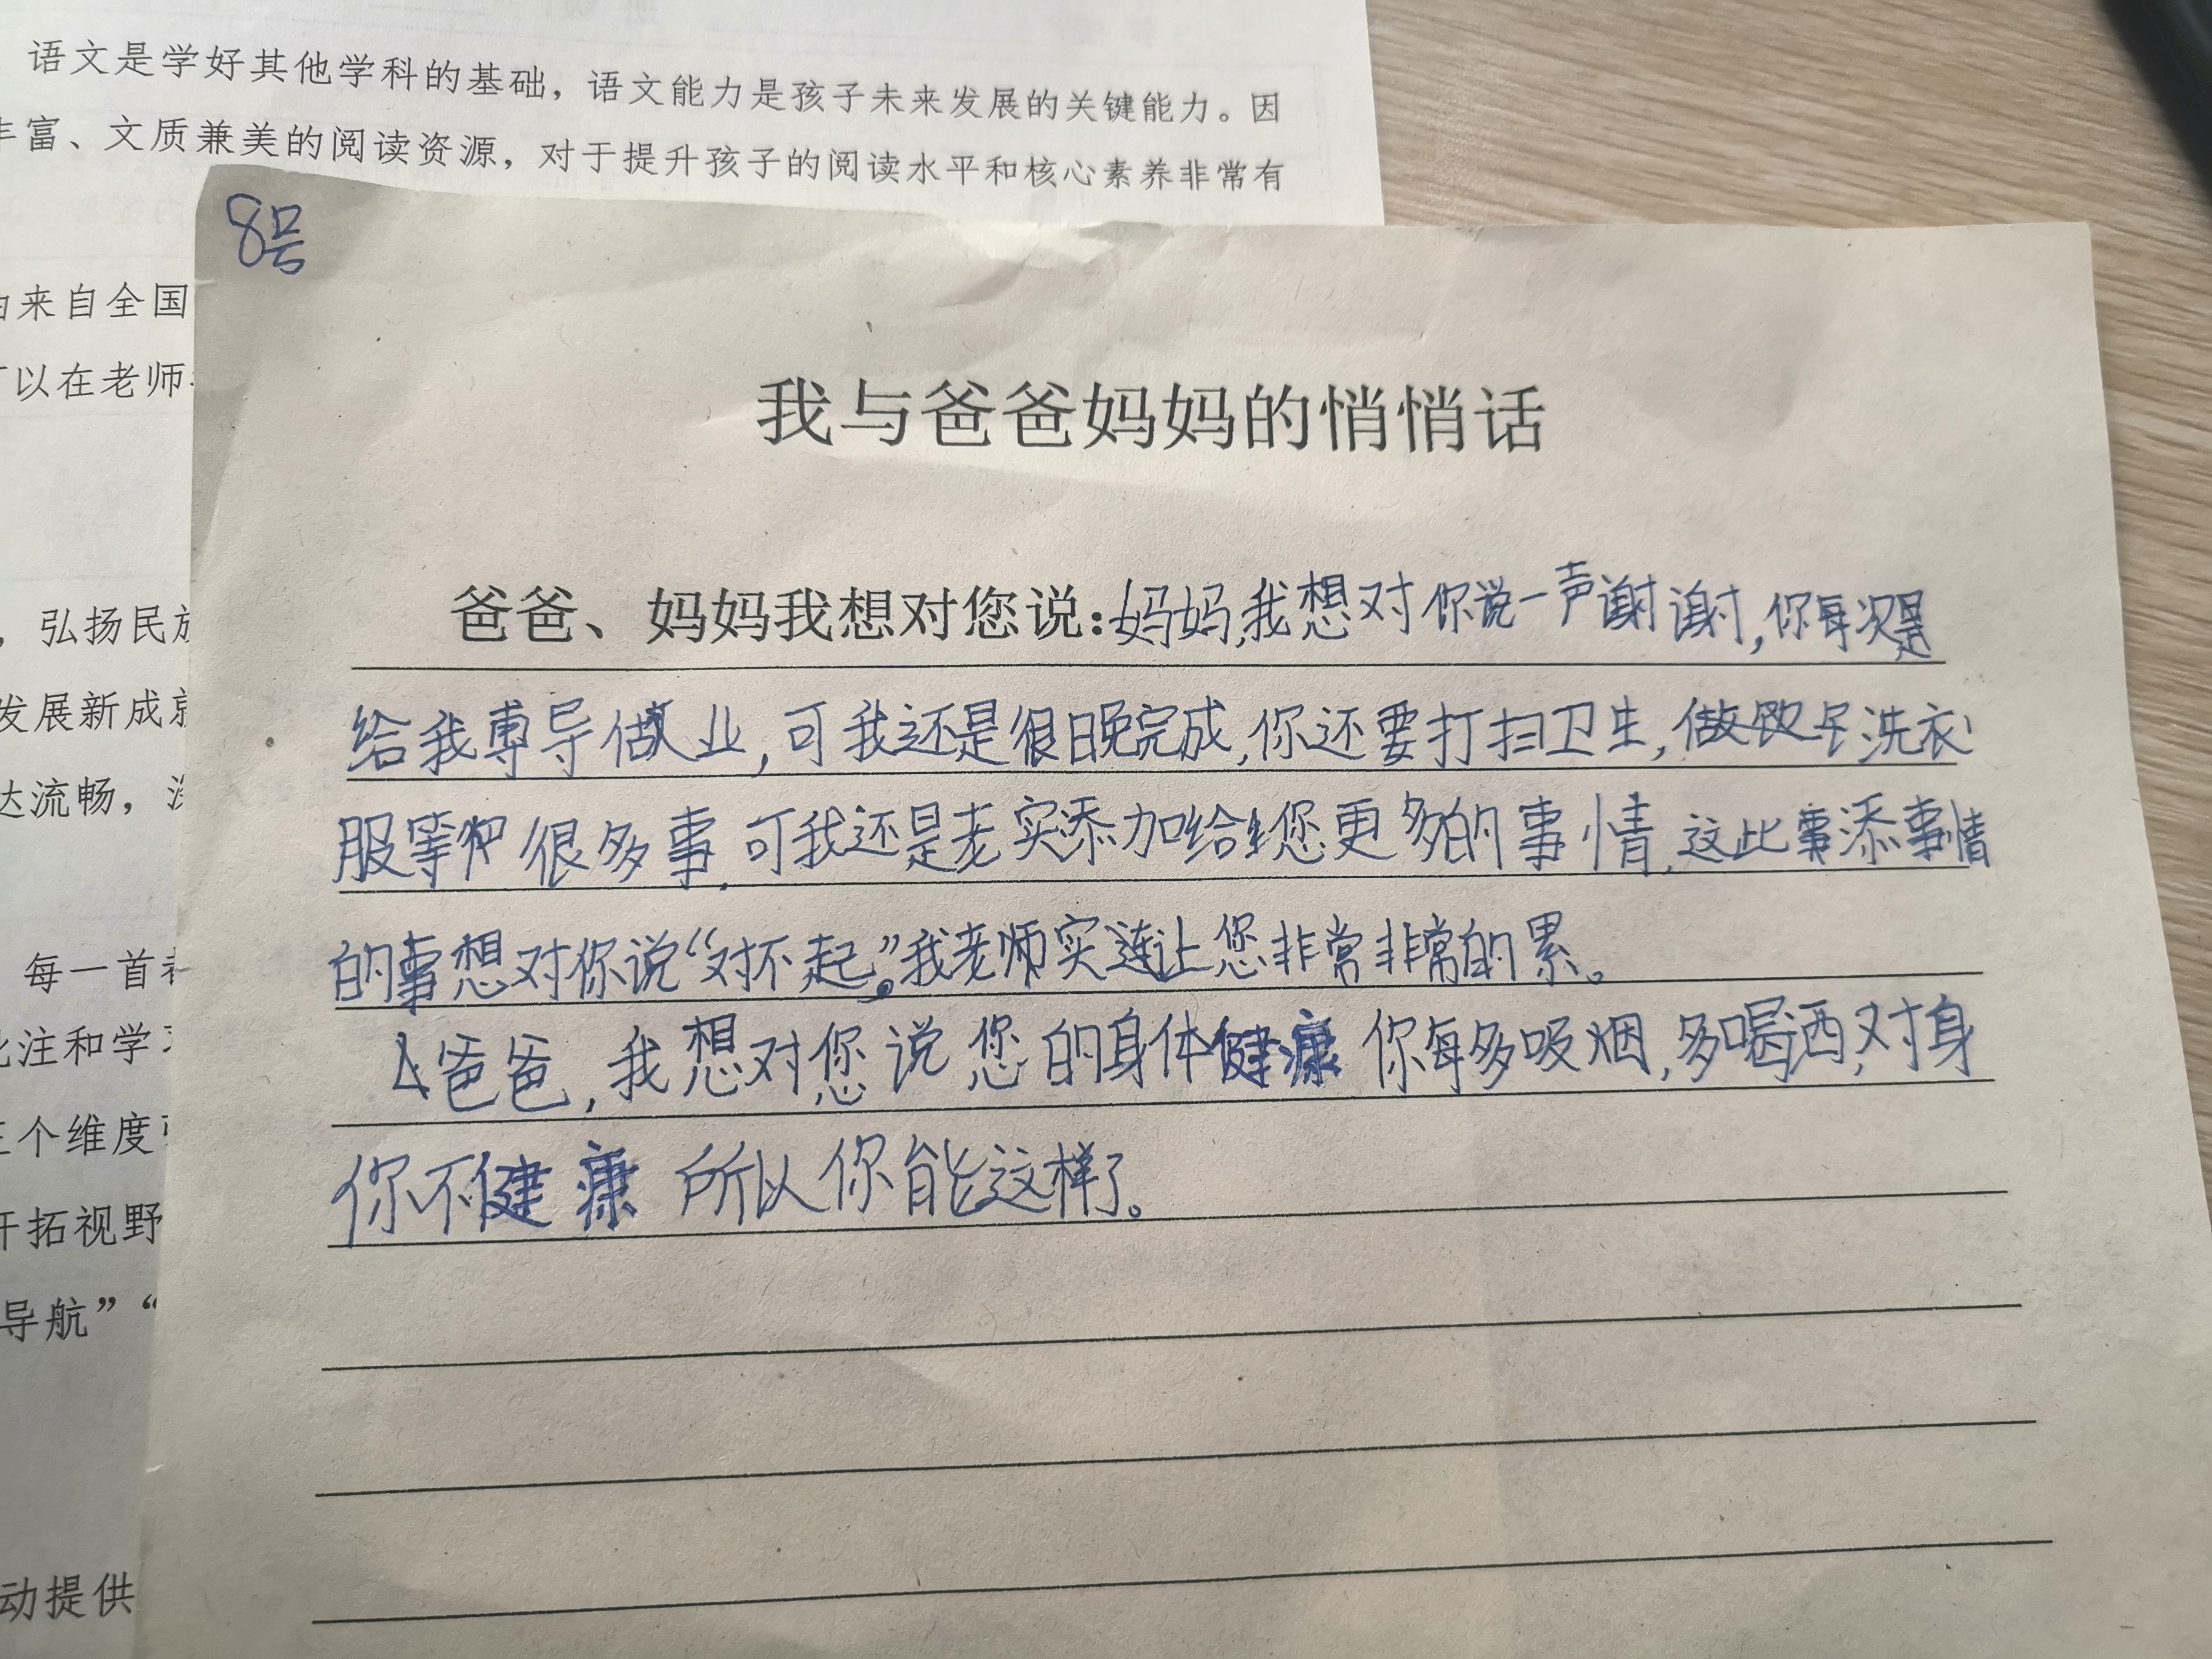 语文是学好其他学科的基础，语文能力是孩子未来发展的关键能力。因
丰富、文质兼美的阅读资源，对于提升孩子的阅读水平和核心素养非常有
8号
来自全国
可以在老师
，弘扬民族
发展新成就
达流畅，
每一首
批注和学习
三个维度
开拓视野
导航” “
动提供
我与爸爸妈妈的悄悄话
爸爸、妈妈我想对您说：妈妈,我想对你说一声谢谢,你每次是
给我尃导做业,可我还是很晚完成,你还要打扫卫生,做洗衣
服等很多事,可我还是老实添加给您更多的事情,这此事添事情
的事想对你说“对不起”。我老师实连让您非常非常的累。
爸爸,我想对您说您的身体健康 你每多吸烟,多喝酉,对身
你不健康 所以你能这样了。